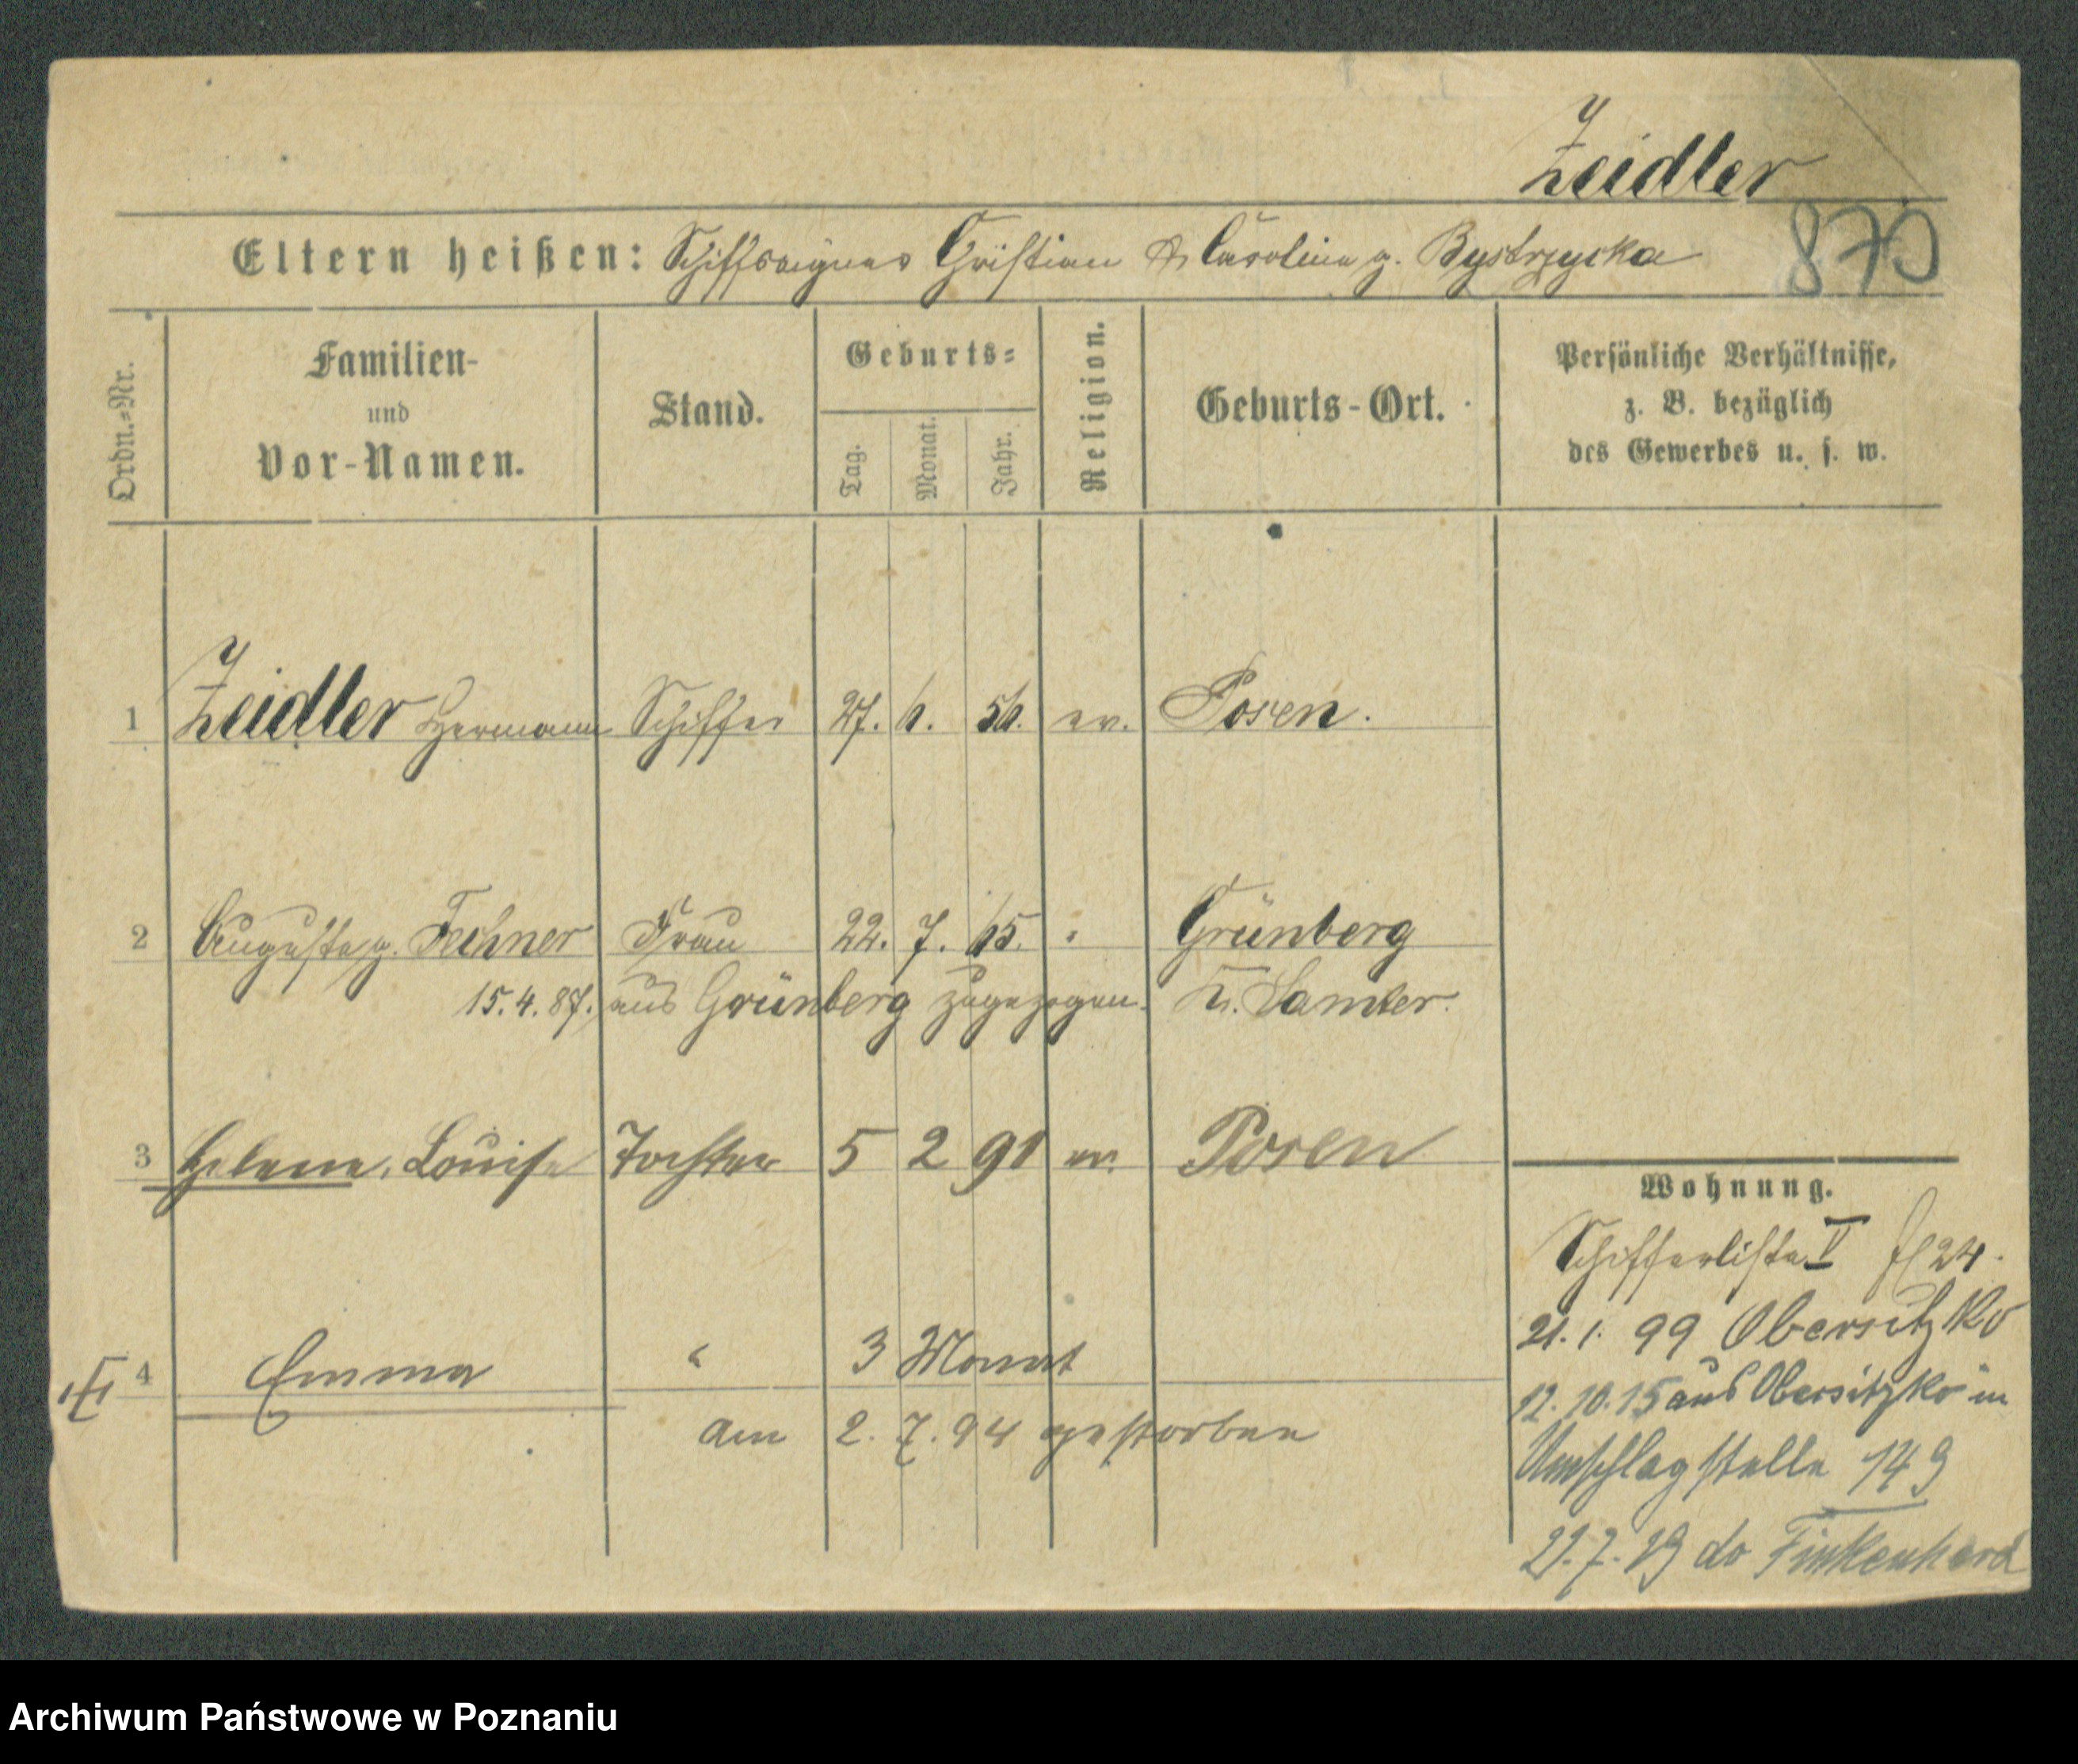 Zeidler
870
Eltern heißen: Schiffseigner Christian & Caroline g. Bystrzycka
Ordn.=Nr.
Familien-
und
Vor-Namen.
Stand.
Geburts=
Tag.
Monat.
Jahr.
Religion.
Geburts-Ort.
Persönliche Verhältnisse,
z. B. bezüglich
des Gewerbes u. s. w.
1 Zeidler Hermann Schiffer 27. 6. 56. ev. Posen.
2 Auguste g. Fechner Frau 22. 7. 65. " Grünberg
15.4.87. aus Grünberg zugezogen. Kr. Samter.
3 Helene, Louise Tochter 5 2 91 ev. Posen
4 Emma " 3 Monat
am 2. 7. 94 gestorben
Wohnung.
Schifferliste V 24.
21. 1. 99 Obersitzko
12. 10. 15 aus Obersitzko in
Umschlagstelle 149
21. 7. 19 do
Archiwum Państwowe w Poznaniu